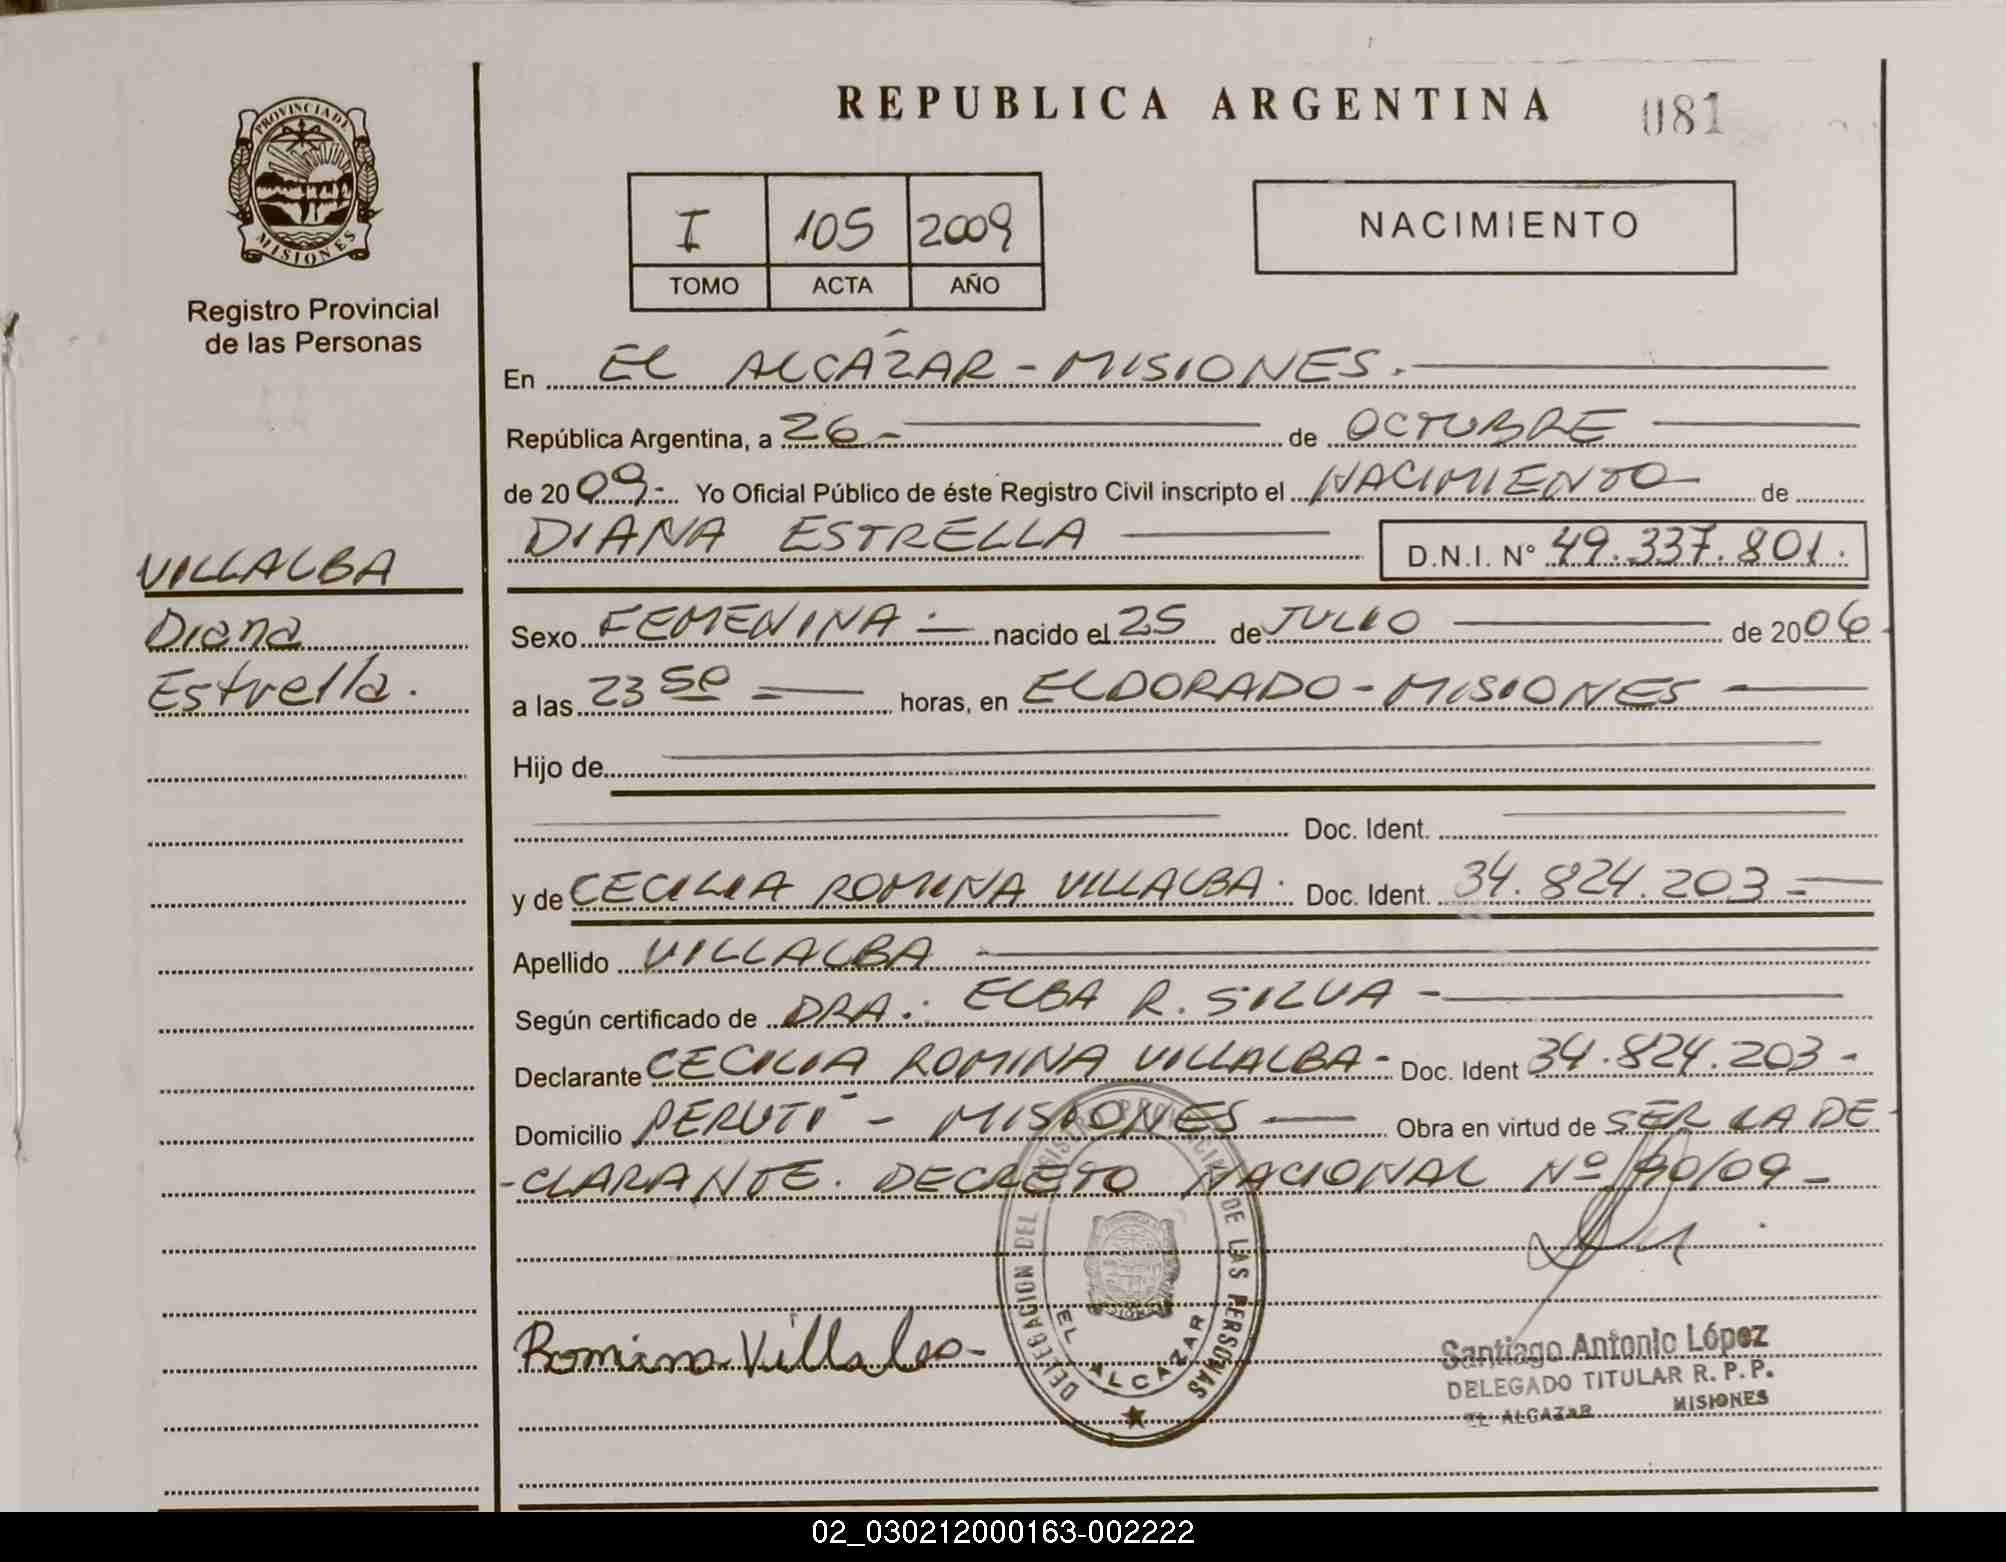 REPUBLICA ARGENTINA
081
PROVINCIA DE
MISIONES
Registro Provincial
de las Personas
I 105 2009
TOMO ACTA AÑO
NACIMIENTO
En EL ALCÁZAR - MISIONES.
República Argentina, a 26 - de OCTUBRE
de 2009.- Yo Oficial Público de éste Registro Civil inscripto el NACIMIENTO de
DIANA ESTRELLA D.N.I. N° 49.337.801.
VILLALBA
Diana
Estrella.
Sexo FEMENINA.- nacido el 25 de JULIO de 2006.
a las 23 50 = horas, en ELDORADO - MISIONES
Hijo de
Doc. Ident.
y de CECILIA ROMINA VILLALBA. Doc. Ident. 34.824.203 =
Apellido VILLALBA
Según certificado de DRA.: ELBA R. SILVA -
Declarante CECILIA ROMINA VILLALBA - Doc. Ident 34.824.203 -
Domicilio PERUTÍ - MISIONES Obra en virtud de SER LA DE-
-CLARANTE. DECRETO NACIONAL Nº 90/09 -
DELEGACION DEL REGISTRO PROVINCIAL DE LAS PERSONAS
EL ALCAZAR
Romina Villalba-
Santiago Antonio López
DELEGADO TITULAR R. P. P.
EL ALCAZAR MISIONES
02_030212000163-002222